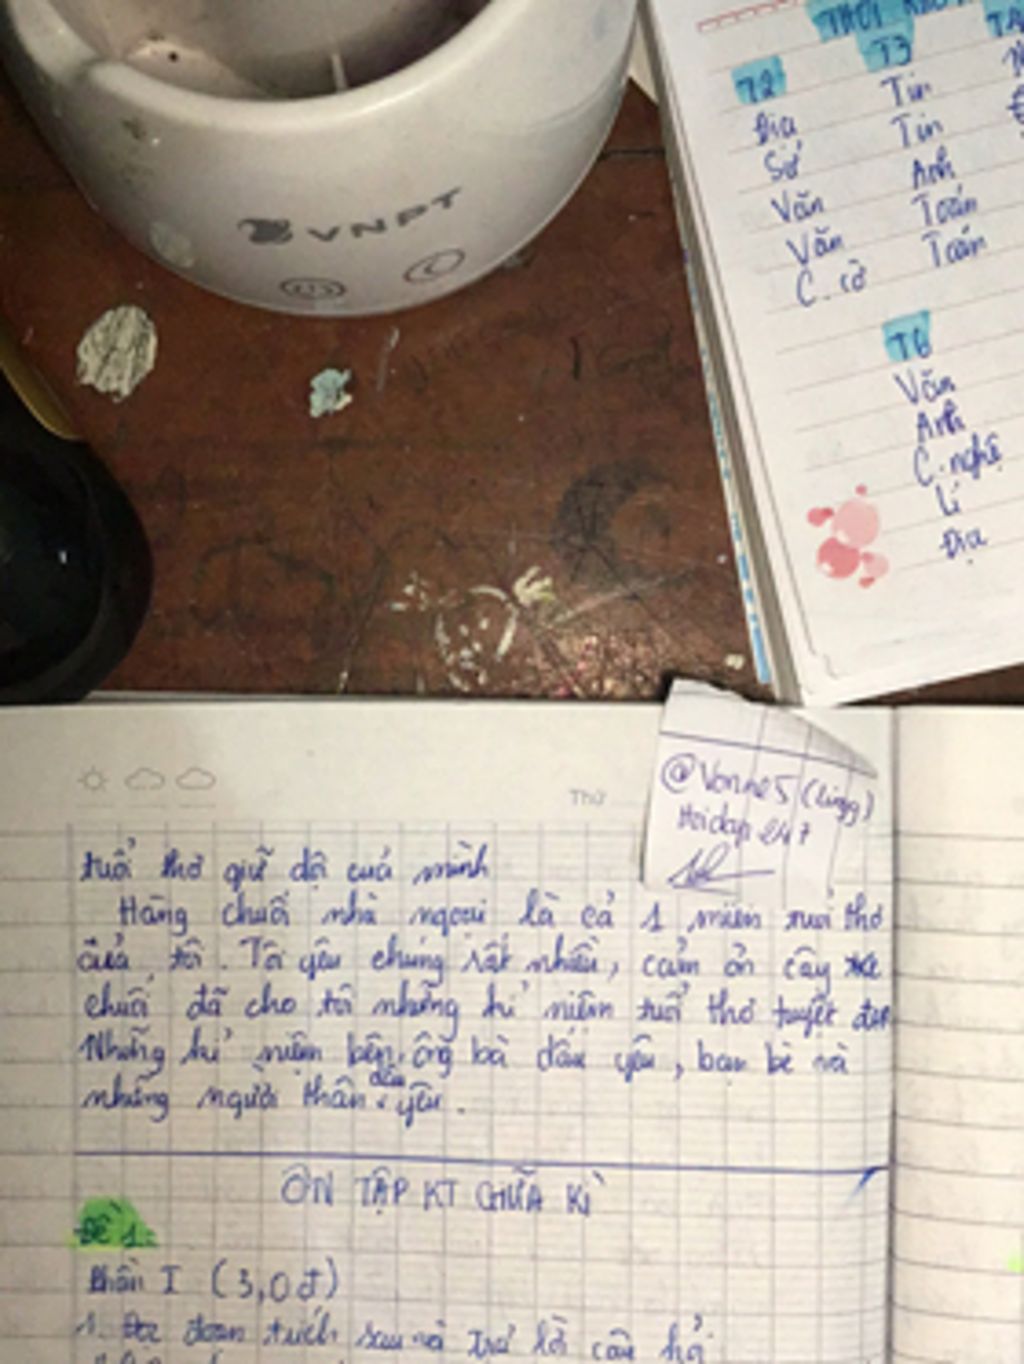 VNPT
T2
Địa
Sử
Văn
Văn
C. cờ
T3
Tin
Tin
Anh
Toán
Toán
T6
Văn
Anh
C.nghệ
Lí
Địa
Thứ
@Vonne5 (Lingg)
Hoidap247
tuổi thơ giữ dội cuả mình
Hàng chuối nhà ngoại là cả 1 miền tuổi thơ
của tôi. Tôi yêu chúng rất nhiều, cảm ơn cây
chuối đã cho tôi những kỉ niệm tuổi thơ tuyệt đẹp
Những kỉ niệm bên ông bà dấu yêu, bạn bè và
những người thân dấu yêu.
ÔN TẬP KT GIỮA KÌ
ĐỀ 1:
Phần I (3,0 đ)
1. Đọc đoạn trích sau và trả lời câu hỏi